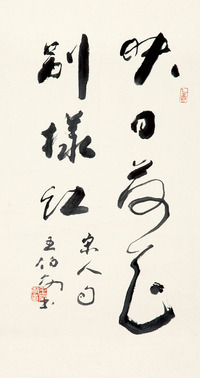 映日荷花
别樣红
宋人句
王伯敏书